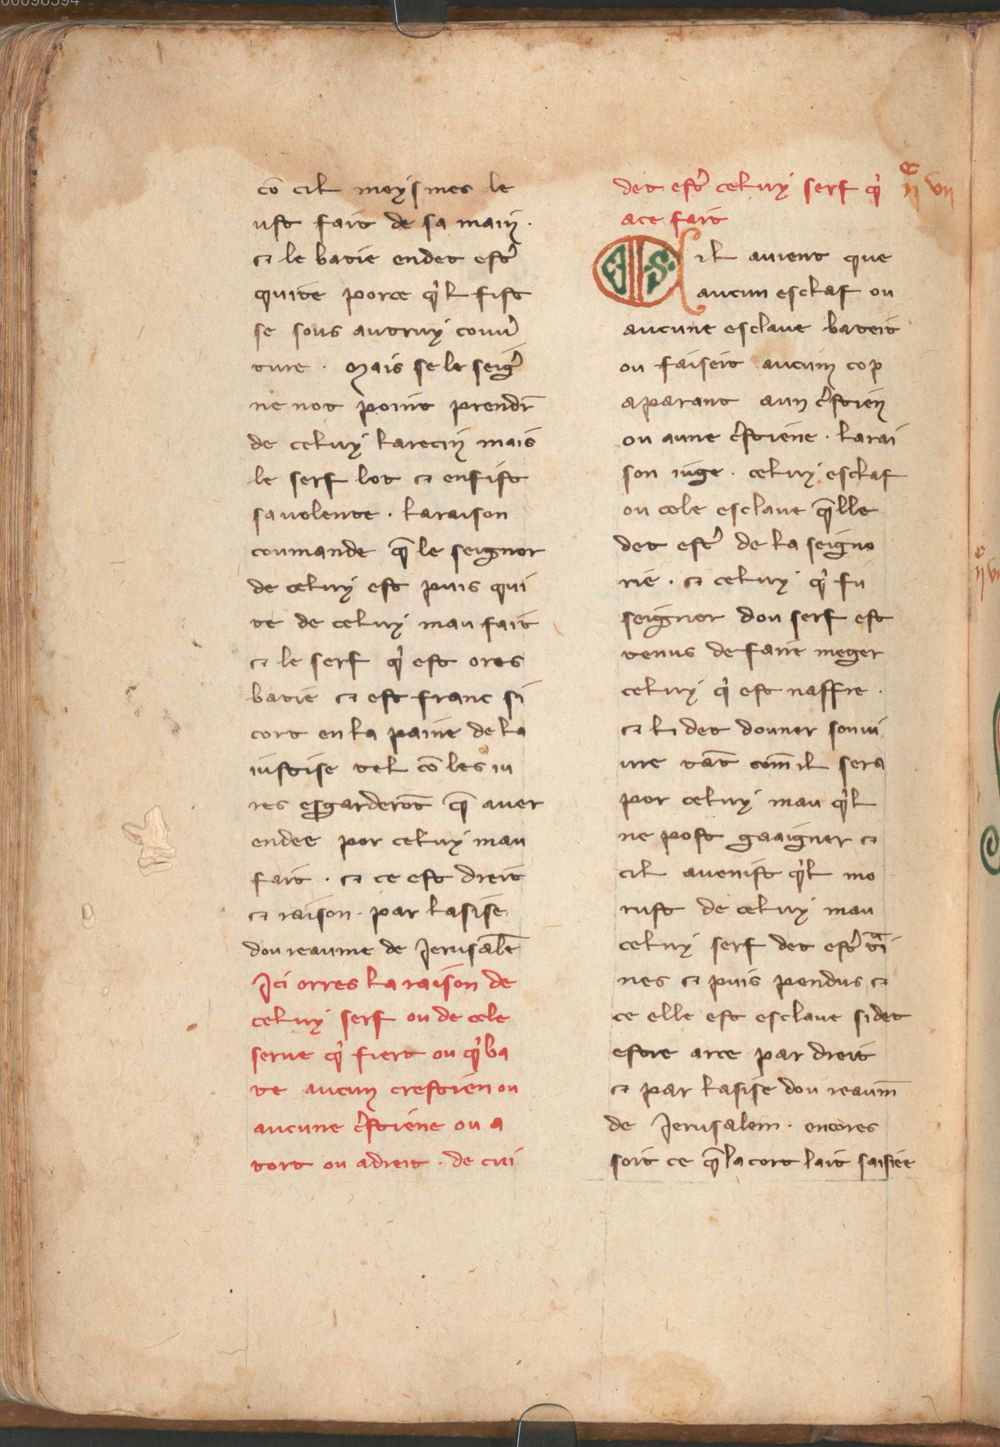 cō cil meyismes le
ust fait de sa main ·
⁊ le batie endet estr̉
quite porce q̉l fist
se sous autruy couu̾
ture · Mais se le seigr̉
ne not point prendr̄
de celuy larecin mais
le serf lot ⁊ enfist
sauolente · Laraison
coumande q̄ le seignor
de celuy est puis qui
te de celuy maufait
⁊ le serf q̉ est ores
batie ⁊ est franc si
cort en la paine de la
iustise tel cō les iu
res esgarderōt q̄ auer
endee por celuy mau
fait · ⁊ ce est dreit
⁊ raison · par lasise
dou reaume de Jerusalē
Ici orres la raison de
celuy serf ou de cele
serue q̉ fiert ou q̉ ba
te aucun crestien ou
aucune c̉stiene ou a
tort ou adreit · de cui
det estr̉ celuy serf q̉
ace fait
Sil auient que
aucun esclaf ou
aucune esclaue bateit
ou faiseit aucun cop
aparant aun c̉stien
ou aune c̉stiene · Larai
son iuge · celuy esclaf
ou cele esclaue q̄lle
det estr̉ de la seigno
rie · ⁊ celuy q̉ fu
seignor dou serf est
tenus de faire meger
celuy q̉ est naffre ·
⁊ li det douner sonui
ure tāt com̄ il sera
por celuy mau q̉l
ne post gaaigner ⁊
cil auenist q̉l mo
rust de celuy mau
celuy serf det estr̉ tᷓi
nes ⁊ puis pendus ⁊
ce elle est esclaue si det
estre arce par dreit
⁊ par lasise dou reaum̄
de Jerusalem · encores
soit ce q̄ la cort lait saisiee